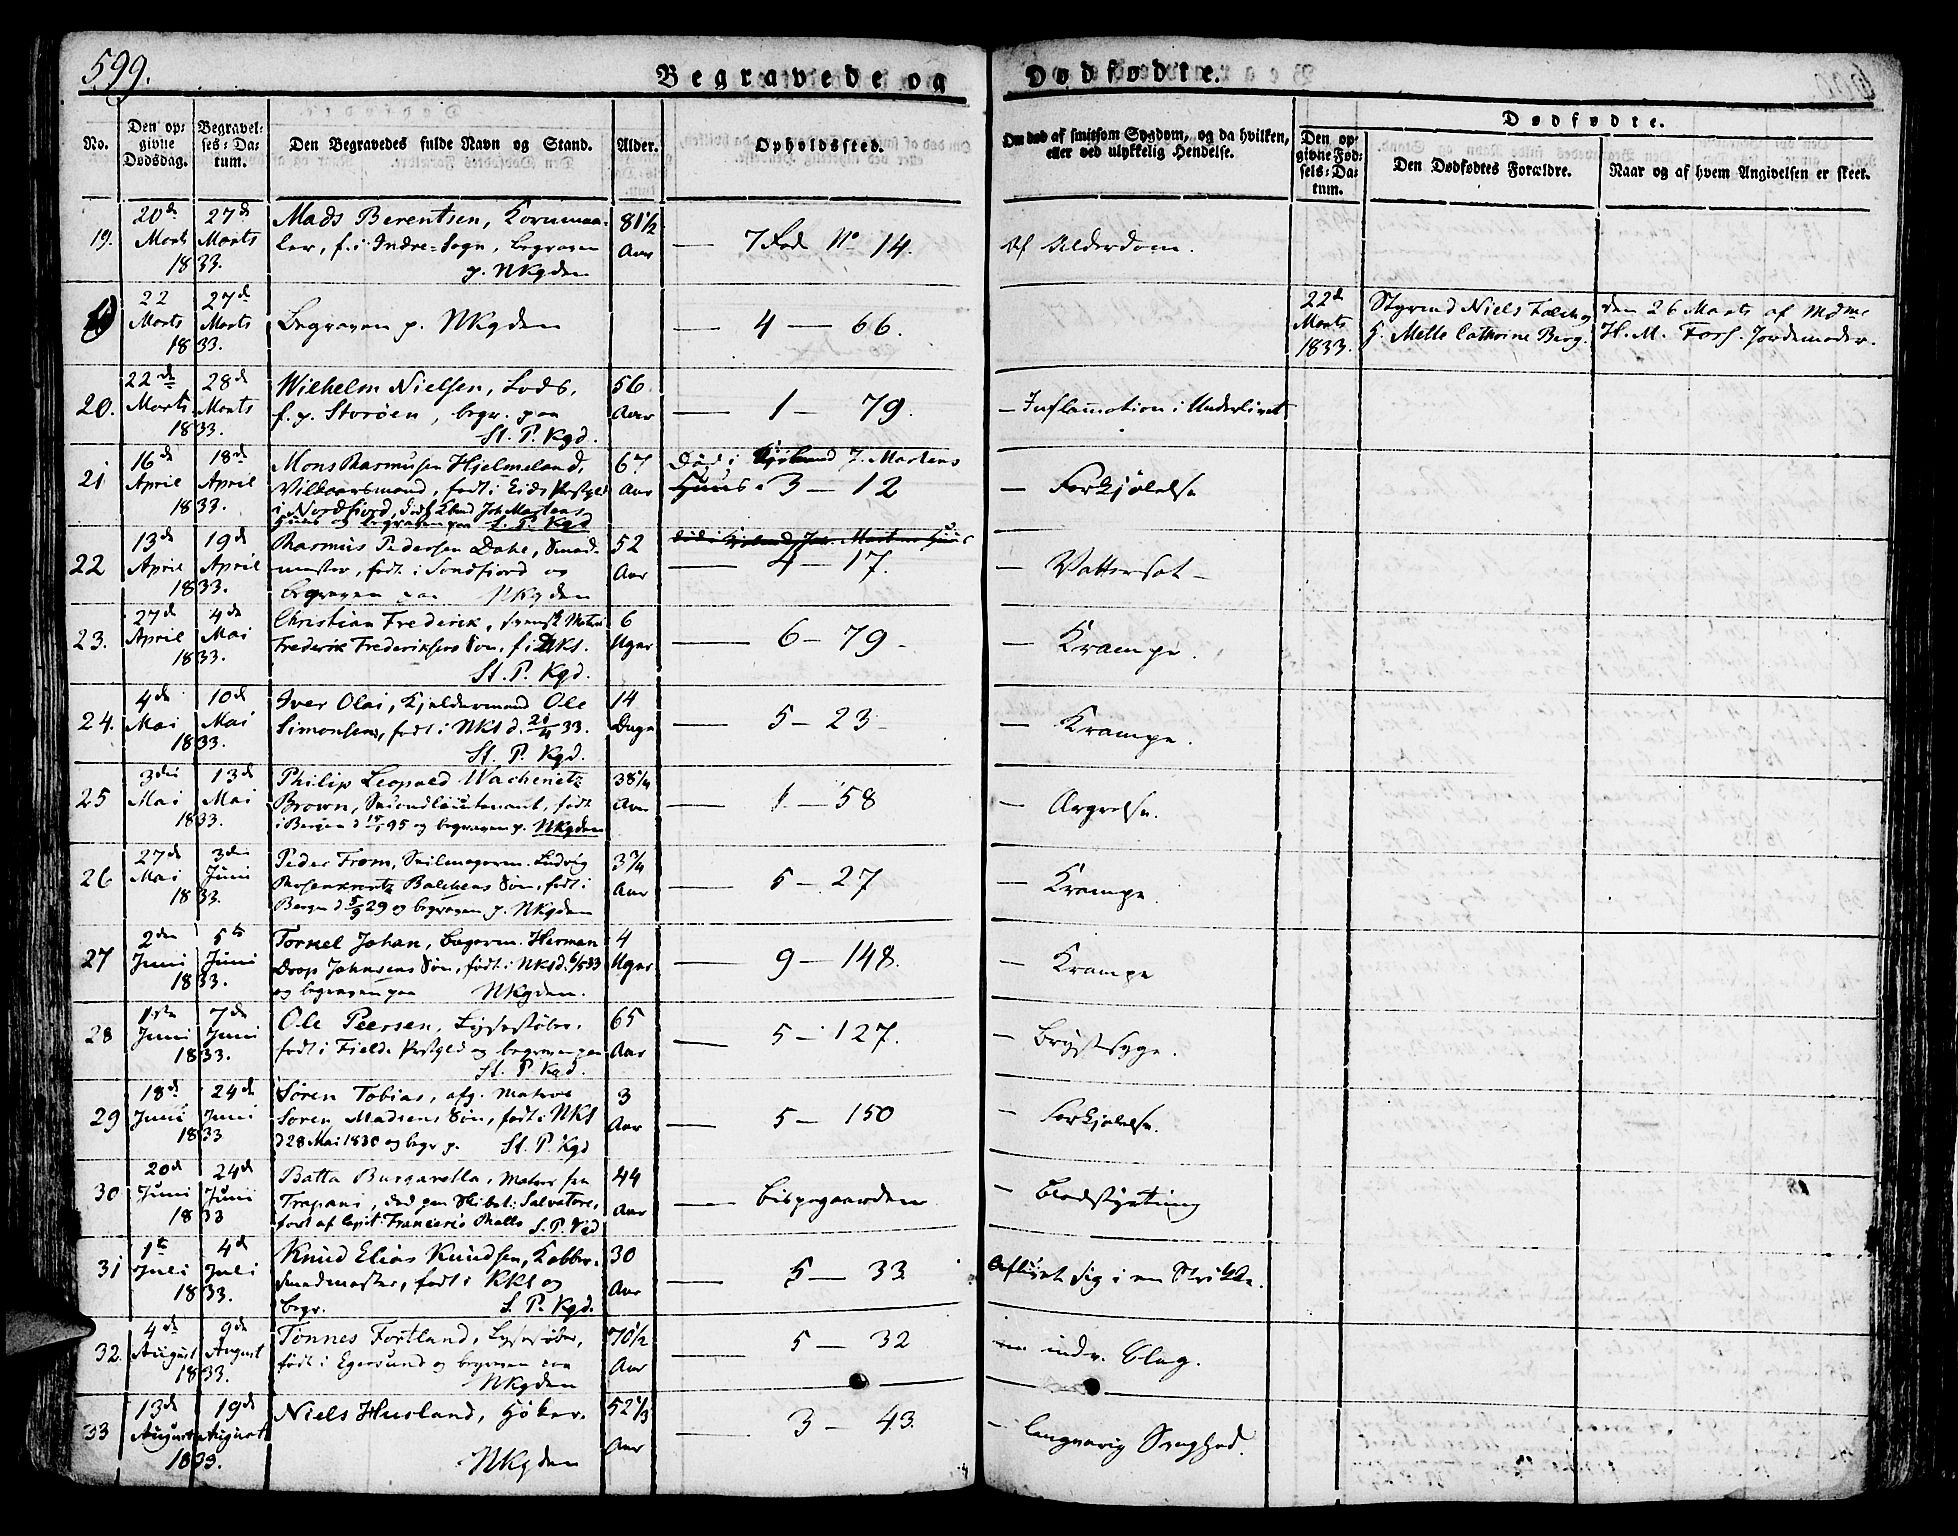 599.
Begravede og Dødfødte.
No.
Den op-
givne
Dødsdag.
Begravel-
ses-Da-
tum.
Den Begravedes fulde Navn og Stand.
Alder.
Opholdssted.
Om død af smitsom Sygdom, og da hvilken,
eller ved ulykkelig Hendelse.
Dødfødte.
Den op-
givne Fød-
sels-Da-
tum.
Den Dødfødtes Forældre.
Naar og af hvem Angivelsen er skeet.
19.
20de
Marts
1833.
27de
Marts
Mads Berentsen, Kornmaa-
ler, f. i Indre-Sogn, begraven
p. NKgden
81½
Aar
7 Rod No 14.
Af Alderdom.
22
Marts
1833.
27de
Marts
Begraven p. NKgden
— 4 — 66.
22de
Marts
1833.
Styrmd Niels Falch og
H. Mette Cathrine Berg.
den 26 Marts af Mdme
H. M. Jordemoder.
20.
22de
Marts
1833.
28de
Marts
Wilhelm Nielsen, Lods,
f. p. Storøen, begr. paa
St. P. Kgd.
56
Aar
— 1 — 79.
— Inflammation i Underlivet
21
16de
April
1833.
18de
April
Mons Rasmusen Hjelmeland,
Vilkaarsmand, født i Eids Prstgld
i Nordfiord, død i Kbmd Joh. Martens
Huus og begraven paa St. P. Kgd
67
Aar
Død i Kjøbmd J. Martens
Huus. 3 — 12
— Forkjølelse
22
13de
April
1833.
19de
April
Rasmus Pedersen Dahe, Smed-
mester, født i Sondfiord og
begraven paa NKgden
52
Aar
— 4 — 17.
— Vattersot —
23.
27de
April
1833.
4de
Mai
Christian Frederik, svensk Matr.
Frederik Frederiksens Søn, f. i NKS.
St. P. Kgd.
6
Uger
— 6 — 79
— Krampe.
24.
4de
Mai
1833.
10de
Mai
Iver Olai, Kjeldermand Ole
Simonsens, født i NKS d. 20/4 33.
St. P. Kgd.
14
Dage
— 5 — 23
— Krampe.
25
3die
Mai
1833.
13de
Mai
Philip Leopold Wachenietz
Brown, Secondlieutenant, født
i Bergen d. 95 og begraven p. NKgden
38¼
Aar
— 1 — 58
— Ærgrelse.
26
27de
Mai
1833.
3die
Juni
Peder From, Seilmagerm. Ludvig
Rosenkrantz Balchens Søn, født i
Bergen d 5/9 29 og begraven p. NKgden
3¾
Aar
— 5 — 27
— Krampe.
27
2den
Juni
1833.
5te
Juni
Tornel Johan, Bagerm. Herman
Doop Johnsens Søn, født i NKS d. 6/5 33
og begraven paa NKgden.
4
Uger
— 9 — 148.
— Krampe
28
1ste
Juni
1833.
7de
Juni
Ole Peersen, Lysestøber,
født i Fielde Prstgld og begraven paa
St. P Kgd.
65
Aar
— 5 — 127.
— Brystsyge.
29
18de
Juni
1833
24de
Juni
Søren Tobias, afg. Matros
Søren Madsens Søn, født i NKS
d 28 Mai 1830 og begr p. St. P. Kgd
3
Aar
— 5 — 150
— Forkjølelse.
30
20de
Juni
1833
24de
Juni
Batta Busgarella, Matros fra
Trapani, død paa Skibet: Salvatore,
ført af Capit: Francesco Mallo S. P. Kgd
44
Aar
— Bispegaarden
— Blodstyrtning
31
1te
Juli
1833.
4de
Juli
Knud Elias Knudsen, Kobber-
smedmester, født i KKS og
begr. S. P. Kgd.
30
Aar
— 5 — 33
Aflivet sig i en Strikke.
32.
4de
August
1833.
9de
August
Tønnes Fortland, Lysestøber,
født i Egersund og begraven paa
NKgden
70½
Aar
— 5 — 32
en indv. Slag.
33
13de
August
1833.
19de
August
Niels Husland, Høker.
NKgden
52⅓
Aar
— 3 — 43
— langvarig Svaghed.